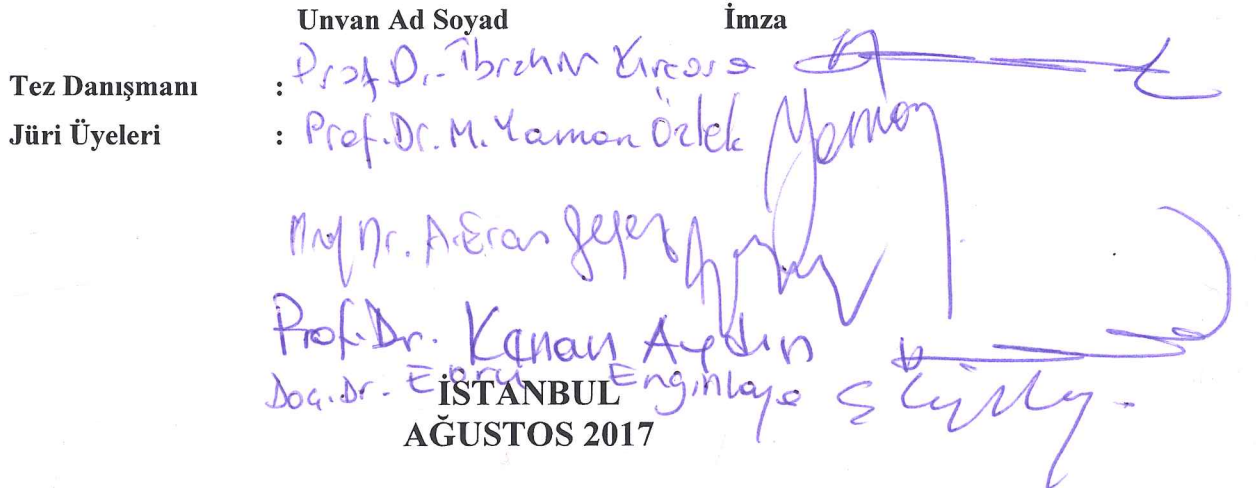 Unvan Ad Soyad İmza
Tez Danışmanı : Prof. Dr. İbrahim
Jüri Üyeleri : Prof.Dr. M. Yaman Öztek
Prof Dr. A. Ercan Gegez
Prof.Dr. Kenan Aydın
Doç.Dr. Ebru Enginkaya
İSTANBUL
AĞUSTOS 2017